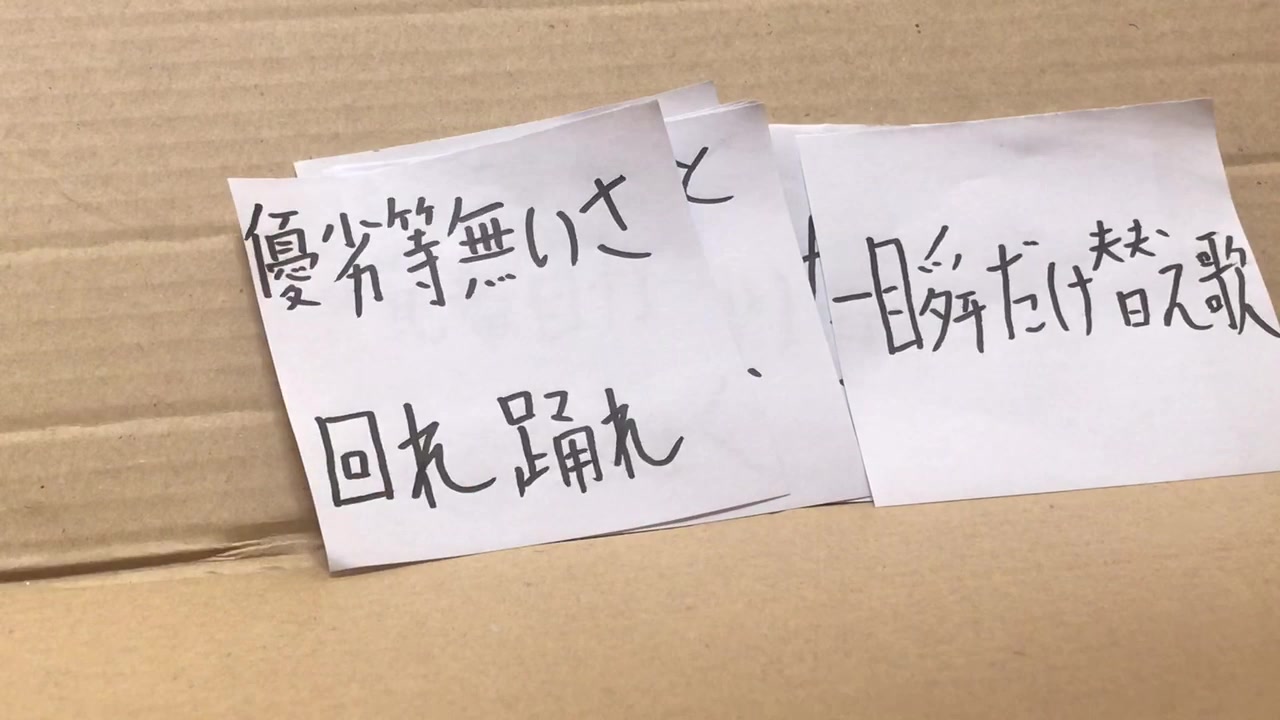 優劣等無いさ
回れ 踊れ
と
一瞬だけ替え歌